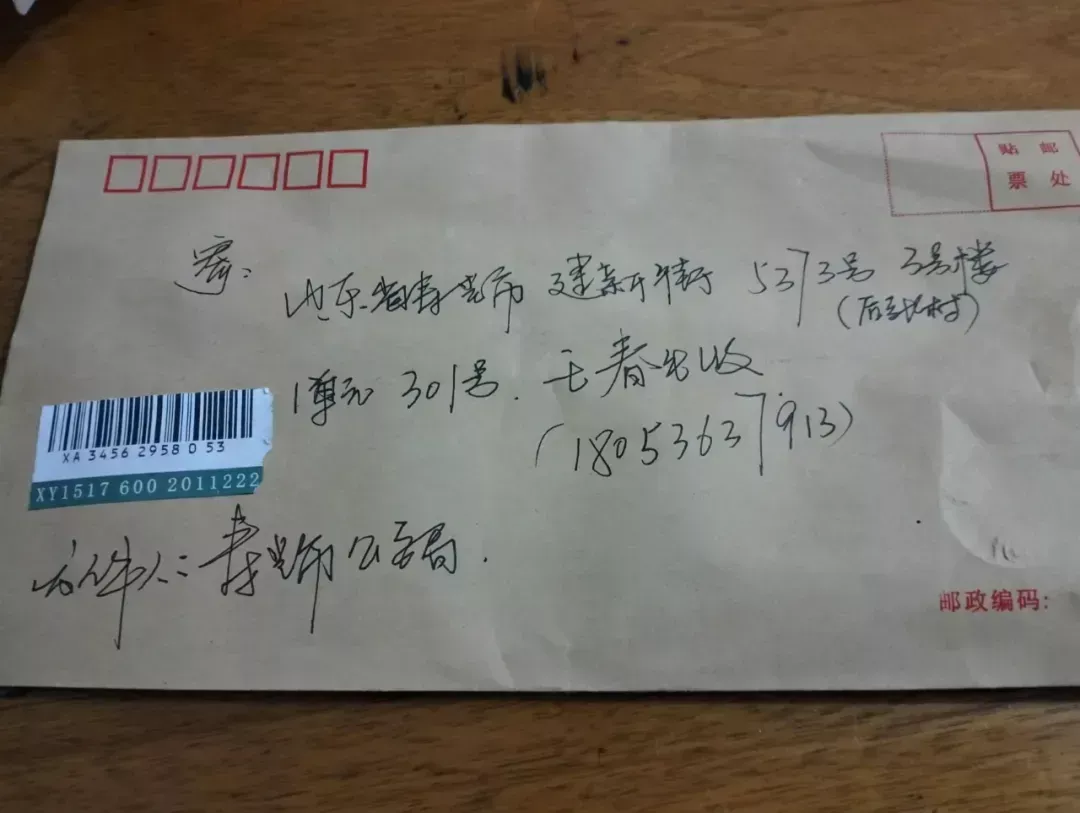 贴 邮
票 处
寄:
山东省寿光市 建新街 5373号 3号楼
(后 村)
1单元 301号. 王春 收
(18053637913)
XA 3456 2958 0 53
XY1517 600 2011222
寿光市公安局.
邮政编码: